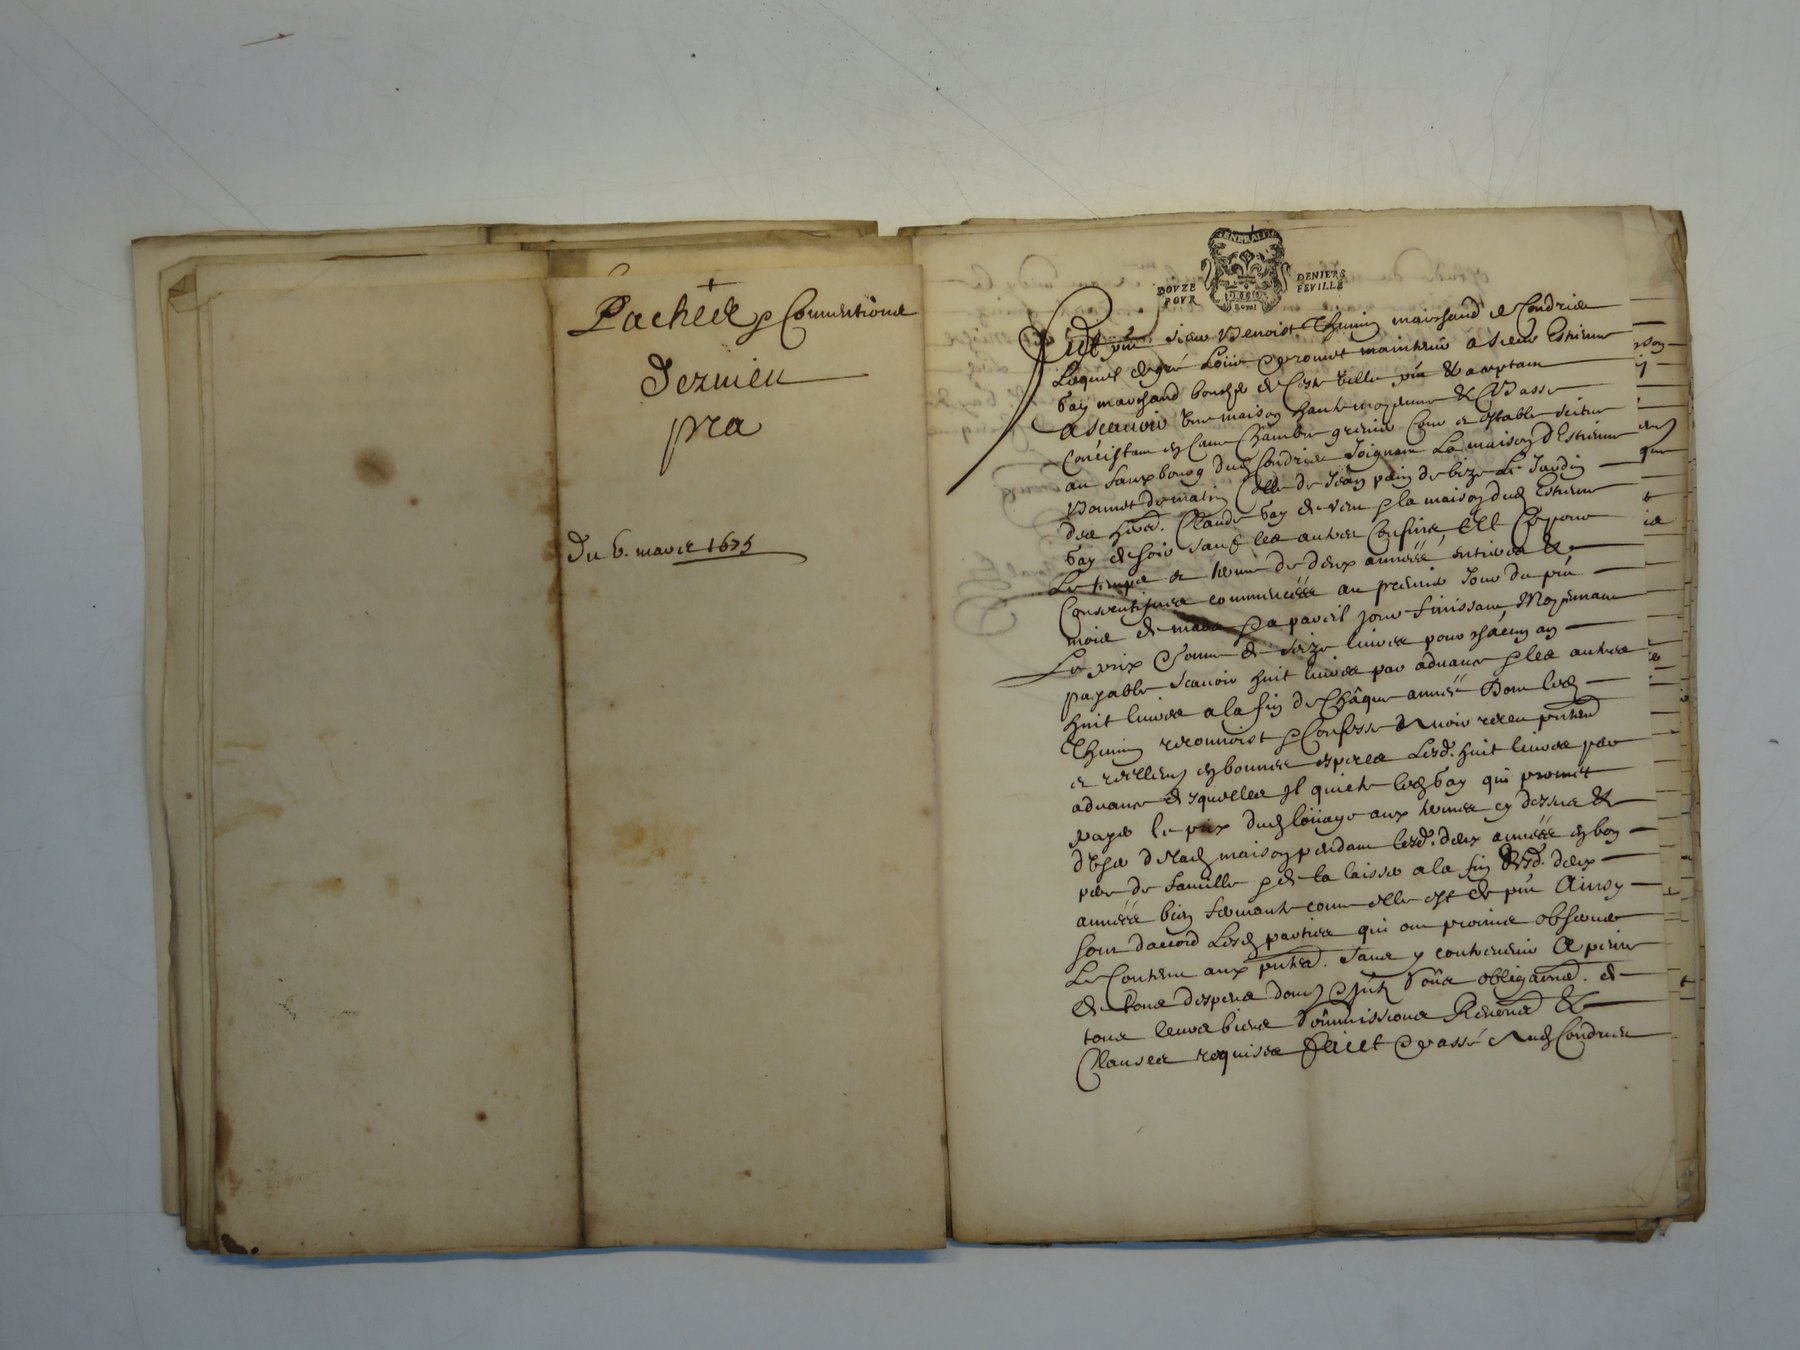 Pachede & Conventions
Dezuieu
pra
Du 6. mars 1675
GENERALITE
DOVZE DENIERS
POVR FEVILLE
Fust pnt sieur Benoist Thunin marchand de Condrieu
Lequel de gré Loüe & promet maintenir a sieur Estienne
Gay marchand boucher de Ceste ville pnt & acceptant
Ascauoir vne maison haute moyenne & Basse
Concistant en Caue Chambre grenier Cour et estable scitue
au fauxbourg dud Condrieu Joignant La maison d'Estienne
Bonnet de matin Celle de Jean pain de bize Le Jardin
des hers. Claude Gay de vent & la maison dud Estienne
Gay de soir sauf les autres Confins, Et Ce pour
Le temps et terme de deux années entieres &
Consecutiues commencées au premier Jour du pnt
mois de mars & a pareil jour finissant, Moyennant
Le prix & somme de seize liures pour chacun an
payable scauoir huit liures par aduance & les autres
huit liures a la fin de Châque année Dont led
Thunin reconnoist & Confesse Auoir receu
et reellem en bonnes especes Lesd. huit liures par
aduance desquelles Il quicte led Gay qui promet
payer le prix dud loüage aux termes cy dessus &
d'vser de lad maison pendant lesd. deux années en bon
pere de famille & de la laisser a la fin desd. deux
années bien fermante comme elle est de pnt Ainsy
sont d'accord Lesd parties qui ont promis obseruer
Le Contenu aux sans y contreuenir A peine
de tous despens dom & soûs obliga. de
tous leurs biens Soûmissions Renons &
Clauses requises Faict & passé Aud Condrieu